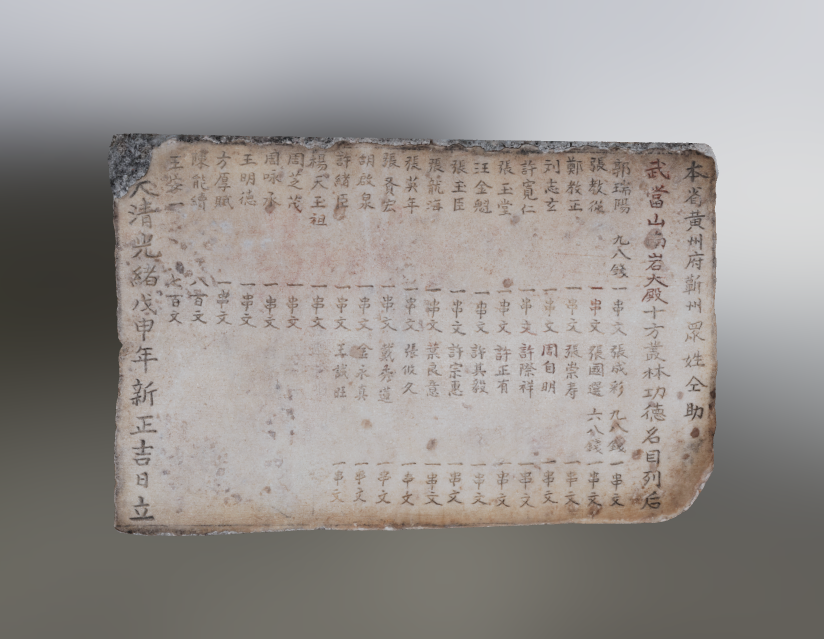 本省黄州府蘄州眾姓仝助
武當山南岩大殿十方叢林功德名目列后
郭瑞陽 九八錢一串文 張成彩 九八錢一串文
張教從 一串文 張國選 六八錢一串文
鄭教正 一串文 張崇寿 一串文
刘志玄 一串文 周自明 一串文
許寬仁 一串文 許際祥 一串文
張玉堂 一串文 許正有 一串文
汪金魁 一串文 許其毅 一串文
張玉臣 一串文 許宗惠 一串文
張龍海 一串文 葉良意 一串文
張英年 一串文 張俊久 一串文
張貴宏 一串文 戴秀蓮 一串文
胡啟泉 一串文 金永真 一串文
許緒臣 一串文 王誠旺 一串文
楊天王祖 一串文
周芝茂 一串文
周咏承 一串文
王明德 一串文
方厚賦 一串文
陳能續 八百文
王 七百文
大清光緒戊申年新正吉日立